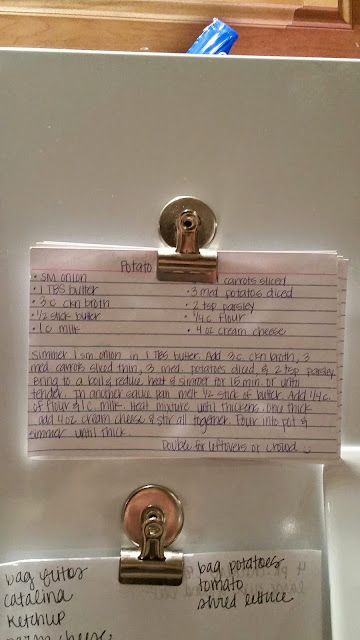 Potato
• sm onion
• 1 TBS butter
• 3 c ckn broth
• 1/2 stick butter
• 1 c milk
carrots sliced
• 3 med potatos diced
• 2 tsp parsley
• 1/4 c flour
• 4 oz cream cheese
Simmer 1 sm onion in 1 TBS butter. Add 3 c. ckn broth, 3
med carrots sliced thin, 3 med. potatoes diced, & 2 tsp parsley.
Bring to a boil & reduce heat & simmer for 15 min. or until
tender. In another sauce pan melt 1/2 stick of butter. Add 1/4 c.
of flour & 1 c. milk. Heat mixture until thickens. Once thick
add 4 oz cream cheese & stir all together. Pour into pot &
simmer until thick.
Double for leftovers or crowd
bag fritos
catalina
ketchup
parm cheese
bag potatoes
tomato
shred lettuce